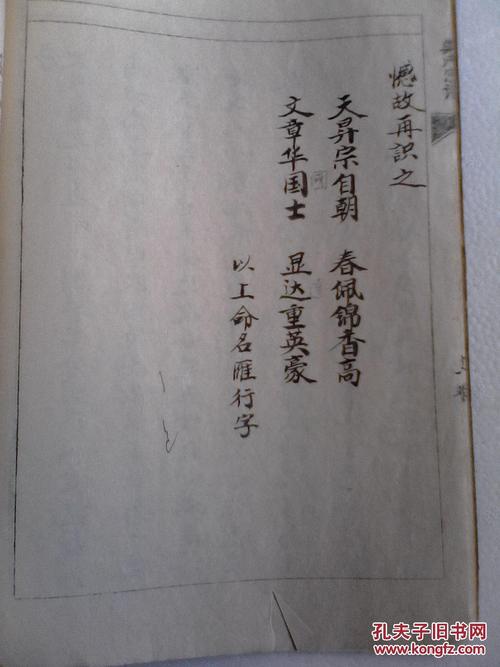 憾故再识之
天昇宗自朝 春佩锦香高
文章华国士 显达重英豪
以上命名匯行字
孔夫子旧书网
www.kongfz.com